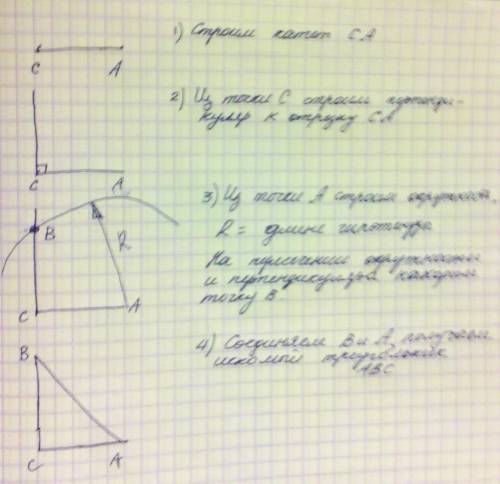 1) Строим катет СА
С А
2) Из точки С строим перпенди-
куляр к отрезку СА
С А
3) Из точки А строим окружность,
R = длине гипотенузы
На пересечении окружности
и перпендикуляра находим
точку В.
В R
С А
4) Соединяем В и А, получаем
искомый треугольник
АВС
В
С А